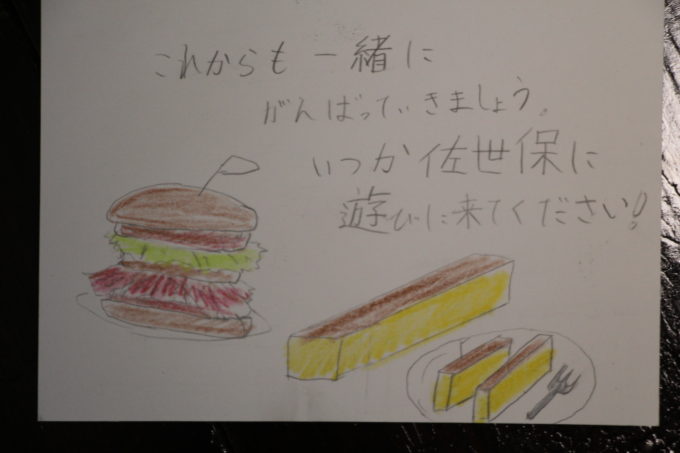 これからも一緒に
がんばっていきましょう。
いつか佐世保に
遊びに来てください!